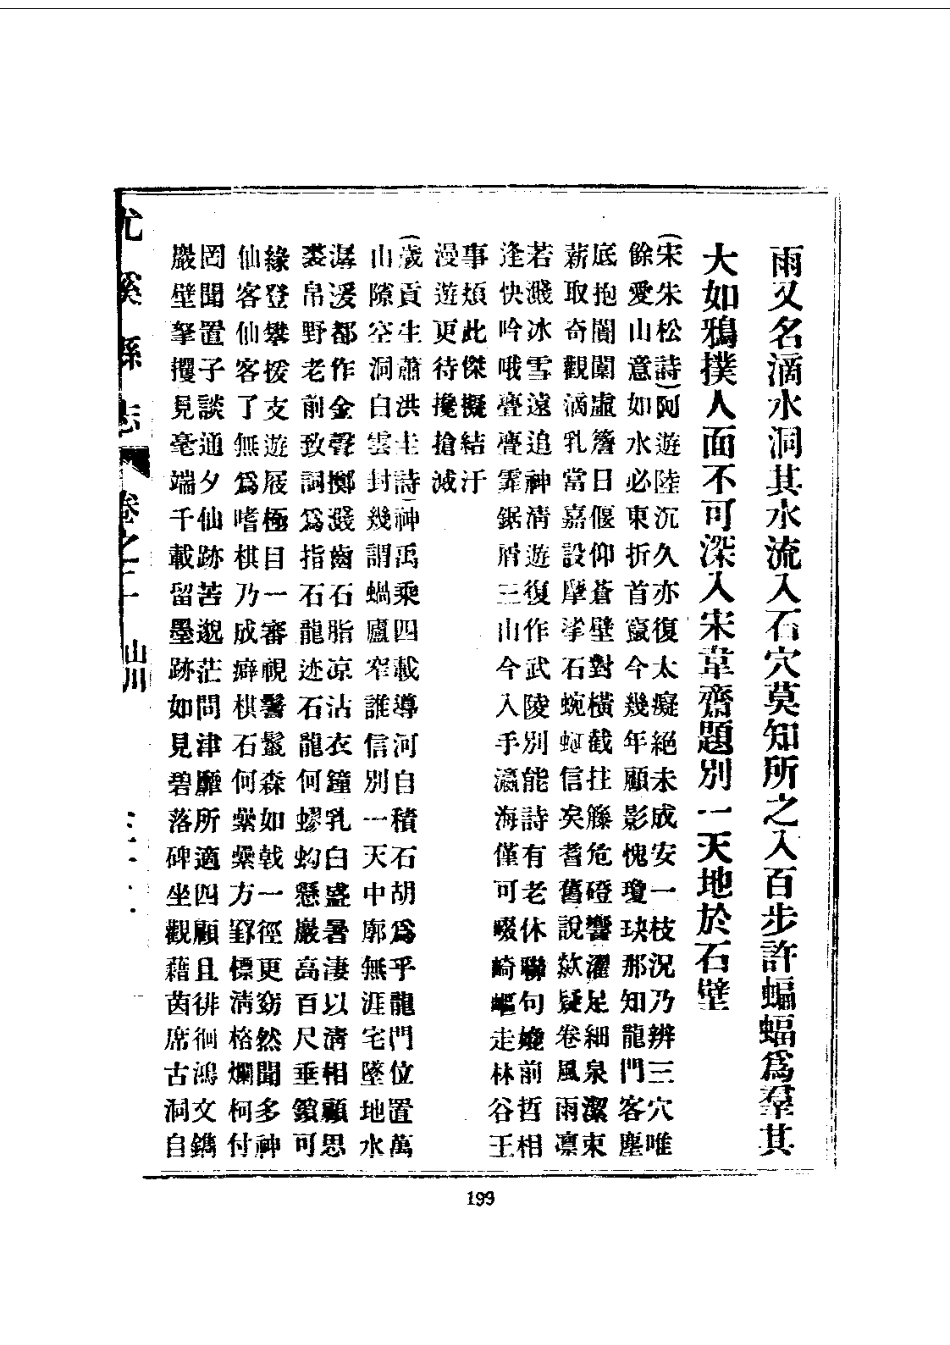 雨又名滴水洞其水流入石穴莫知所之入百步許蝙蝠爲羣其
大如鴉撲人面不可深入宋韋齋題別一天地於石壁
(宋朱松詩)阿遊陸沉久亦復太癡絕未成安一枝況乃辨三穴唯
餘愛山意如水必東折首竄今幾年顧影愧瓊玦那知龍門客塵
底抱關闈盧簷日偃仰蒼壁對橫截拄籐危磴響濯足細泉潔束
薪取奇觀滴乳當嘉設摩挲石蜿虹信矣耆舊說欻疑卷風雨凜
若濺冰雪遠追神清遊復作武陵別能詩有老休聯句媲前哲相
逢快吟哦亹亹霏鋸屑三山今入手瀛海僅可啜崎嶇走林谷王
事煩此傑擬結汗
漫遊更待攙搶滅
(歲貢生蕭洪圭詩)神禹乘四載導河自積石胡爲乎龍門位置萬
山隙空洞白雲封幾謂蝸廬窄誰信別一天中廓無涯宅墜地水
潺湲都作金聲擲濺齒石脂凉沾衣鐘乳白盛暑淒以清相顧思
裘帛野老前致詞爲指石龍迹石龍何蟉蚴懸巖高百尺垂鎖可
緣登攀援支遊屐極目一審視鬐鬣森如戟一徑更窈然聞多神
仙客仙客了無爲嗜棋乃成癖棋石何纍纍方罫標清格爛柯付
罔聞置子談通夕仙跡苦邈茫問津靡所適四顧且徘徊鴻文鐫
巖壁擘攫見毫端千載留墨跡如見碧落碑坐觀藉茵席古洞自
尤溪縣志
卷之二
山川
199